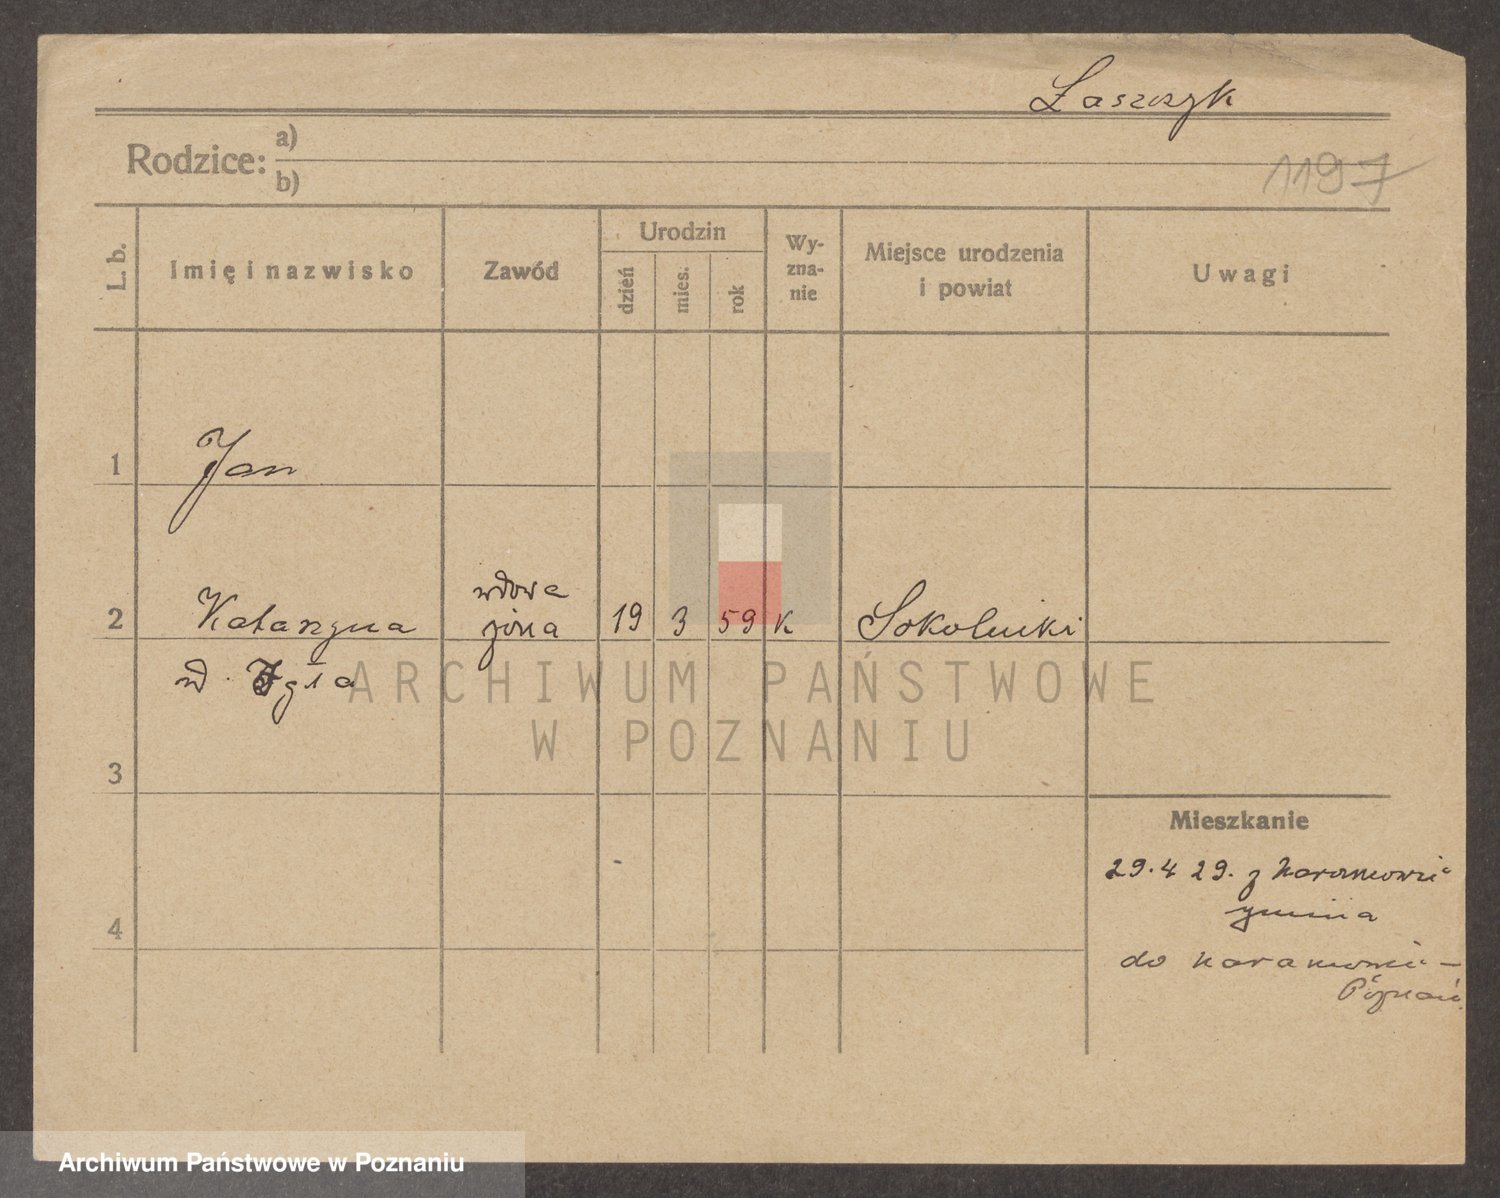 Łaszczyk
Rodzice: a)
b)
1197
L. b.
Imię i nazwisko
Zawód
Urodzin
dzień
mies.
rok
Wy-
zna-
nie
Miejsce urodzenia
i powiat
Uwagi
1 Jan
wdowa
2 Katarzyna żona 19 3 59 K Sokolniki
Igła
3
ARCHIWUM PAŃSTWOWE
W POZNANIU
Mieszkanie
29.4 29. z Naramowic
gmina
4
do Naramowic –
Poznań
Archiwum Państwowe w Poznaniu